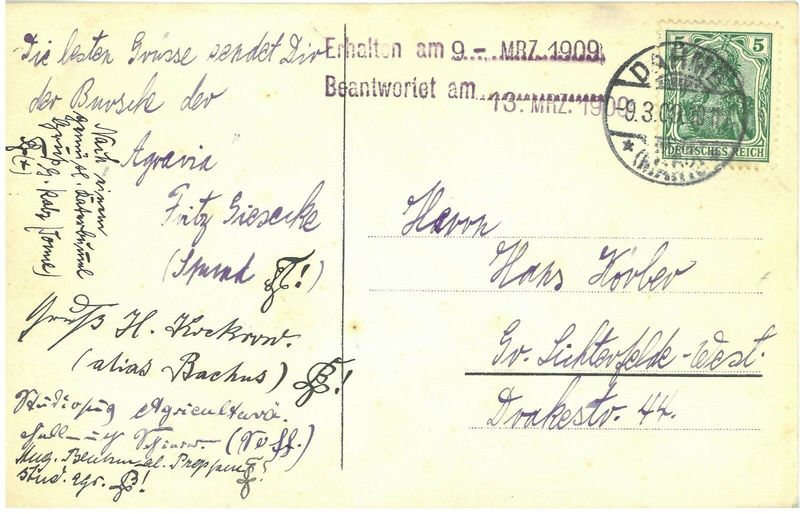 Die besten Grüsse sendet Dir
der Bursche der
"Agravia"
Fritz Giesecke
(Spund !)
Nach einem
Gruß H. Kockrow.
(alias Bachus) !
Studiosus Agriculturä.
stud. agr. !
Erhalten am 9. - MRZ. 1909
Beantwortet am 13. MRZ. 1909
5 5
DEUTSCHES REICH
9.3.09
Herrn
Hans Körber
Gr. Lichterfelde-West.
Drakestr. 44.